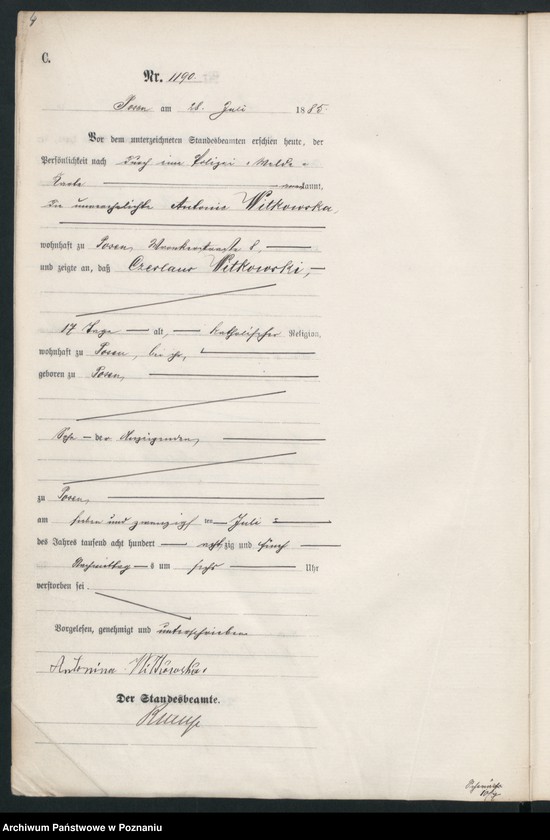 C.
Nr. 1190
Posen am 28. Juli 1885.
Vor dem unterzeichneten Standesbeamten erschien heute, der
Persönlichkeit nach durch eine Polizei-Melde-
Karte kannt,
die unverehelichte Antonie Witkowska,
wohnhaft zu Posen, Wronkerstraße 8,
und zeigte an, daß Czeslaus Witkowski,
17 Tage alt, katholischer Religion,
wohnhaft zu Posen, bei ihr,
geboren zu Posen,
Sohn der Anzeigenden,
zu Posen,
am sieben und zwanzigsten Juli
des Jahres tausend acht hundert achtzig und fünf
Nachmittags um sechs Uhr
verstorben sei.
Vorgelesen, genehmigt und unterschrieben
Antonina Witkowska.
Der Standesbeamte.
Archiwum Państwowe w Poznaniu